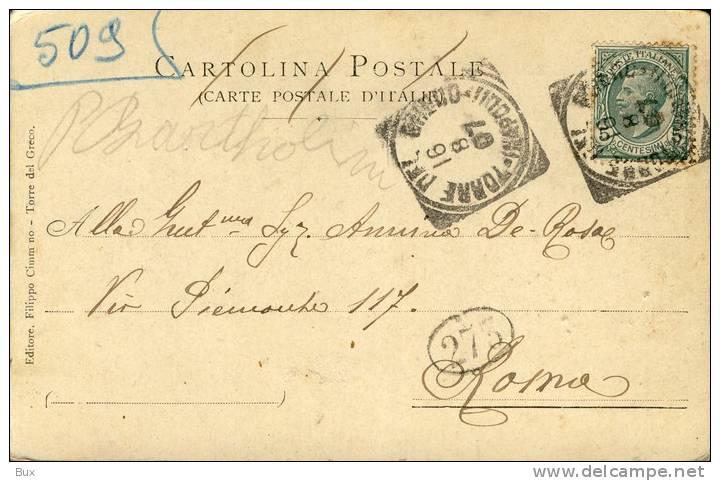 509
CARTOLINA POSTALE
(CARTE POSTALE D'ITALIE)
Bartholini
TORRE DEL GRECO
16
8
07
POSTE ITALIANE
CENTESIMI
Editore. Filippo Cimmino - Torre del Greco.
Alla Gent.ma Sig. Annina De-Rosa
Via Piemonte 117.
273
Roma
Bux
www.delcampe.net